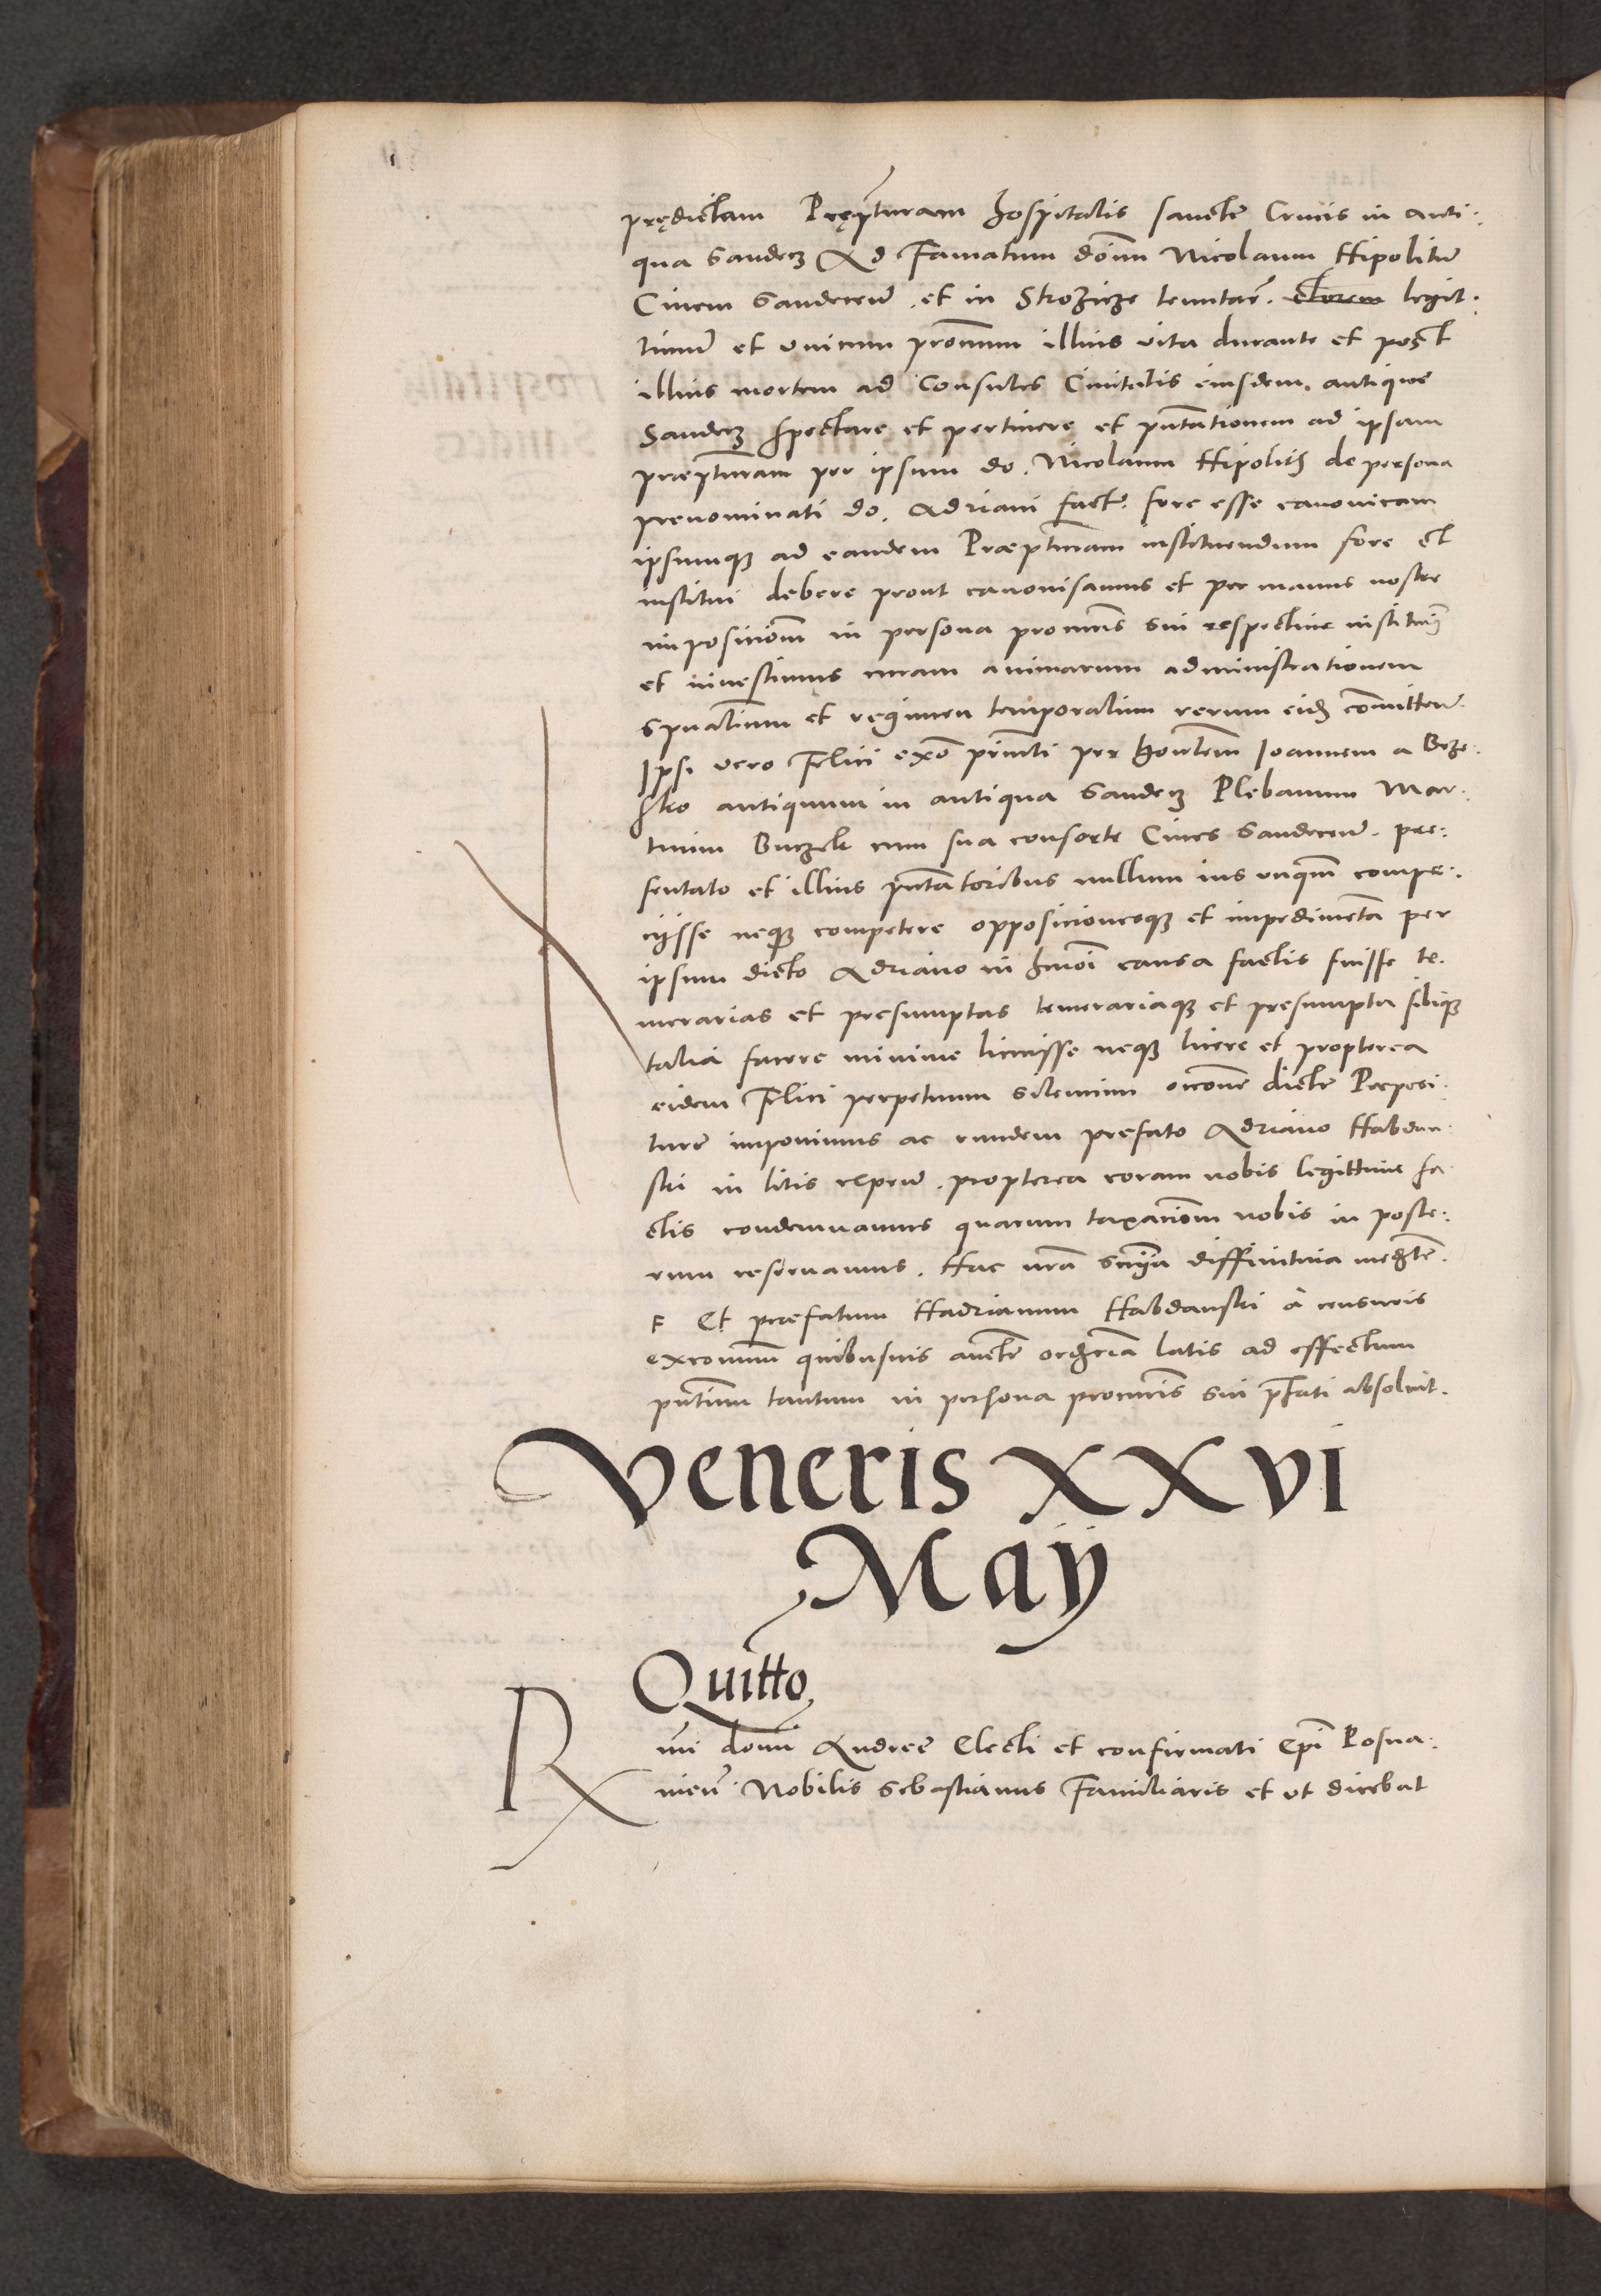 prędictam Pręp̄turam hospitalis sancte Crucis in anti:
qua Sandecz Ad Famatum dōnm Nicolaum Hipolitū
Ciuem Sandeceñ. et in Strozicze tenutar̄. legit:
timū et vnicum pr̄onum illius vita durante et post
illius mortem ad Consules Ciuitatis eiusdem. antique
Sandecz spectare et pertinere et pn̄tationem ad ipsam
præp̄turam per ipsum do. Nicolaum Hipolitū de persona
prenominati do. Adriani factā. fore esse canonicam
ipsumq3 ad eandem Præp̄turam instituendum fore et
institui debere prout canonisamus et per manus nostre
imposicioñm in persona procuris sui respectiue instituim9
et inuestimus curam animarum administrationem
spualium et regimen temporalium rerum eid3 com̄itteñ.
Ipsi vero Felici ex͞o pn̄tati per hon͞lem Ioannem a Brze:
sko antiquum in antiqua Sandecz Plebanum Mar:
tinum Buczek cum sua consorte Ciues Sandeceñ. pre:
sentato et illius pn̄tatoribus nullum ius vnqm̄ compe:
ciisse neq3 competere opposicionesq3 et impedimēta per
ipsum dicto Adriano in hm̄oi causa factis fuisse te.
merarias et presumptas temerariaq3 et presumpta sibiq3
talia facere minime licuisse neq3 licere et propterea
eidem Felici perpetuum silencium or͞cone dicte Preposi:
ture imponimus ac eundem prefato Adriano Habdan:
ski in litis exp͞eñ. propterea coram nobis legittime fa
ctis condemnamus quarum taxacioñm nobis in poste:
rum reseruamus. Hac nr͞a sn͞ia diffinitiua med͞te.
F Et præfatum Hadrianum Habdanski à censuris
excom̄um quibusuis auc͞te ord͞ria latis ad effectum
pn͞tium tantum in persona procuris sui p͞fati absoluit.
Veneris XXvi
Maÿ
Quitto
R mi dōmi Andree Electi et confirmati Ep͞i Posna:
nieñ. Nobilis Sebastianus Familiaris et vt dicebat